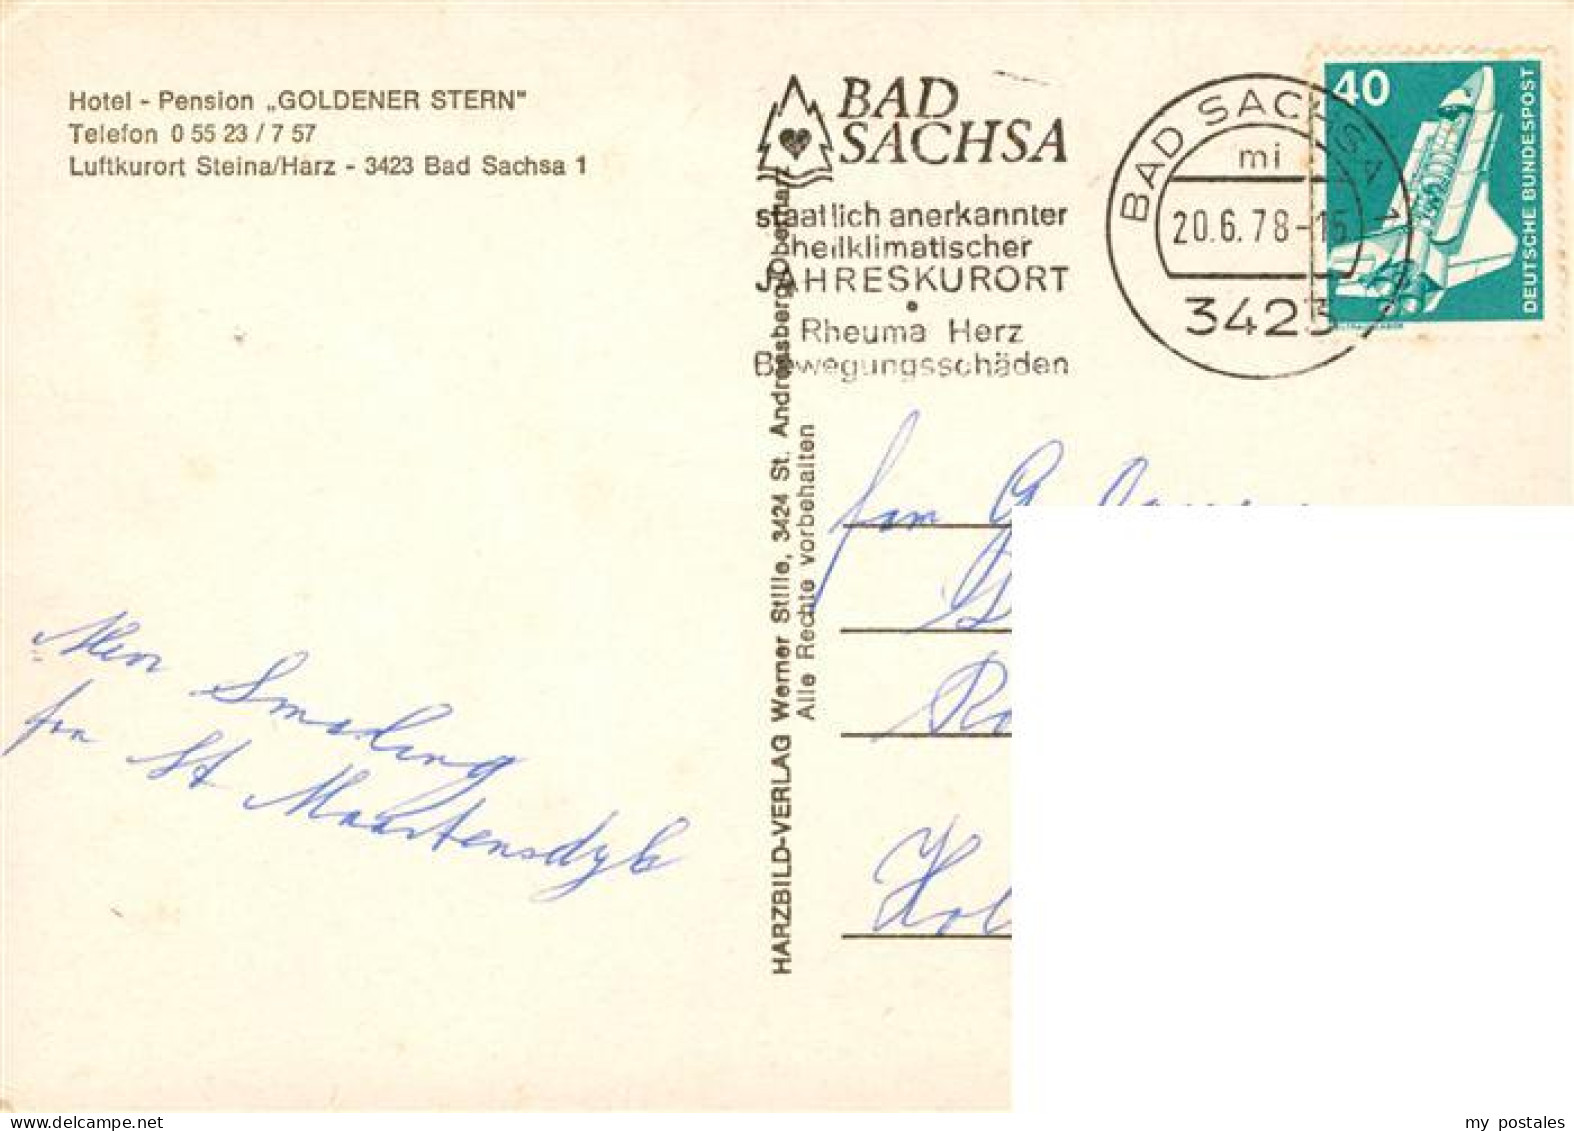 Hotel - Pension „GOLDENER STERN"
Telefon 0 55 23 / 7 57
Luftkurort Steina/Harz - 3423 Bad Sachsa 1
BAD
SACHSA
staatlich anerkannter
heilklimatischer
JAHRESKURORT
Rheuma Herz
Bewegungsschäden
BAD SACHSA 1
mi
20.6.78-15
3423
40
DEUTSCHE BUNDESPOST
HARZBILD-VERLAG Werner Stille, 3424 St. Andreasberg/Oberharz
Alle Rechte vorbehalten
fam G
St Maartensdyk
my postales